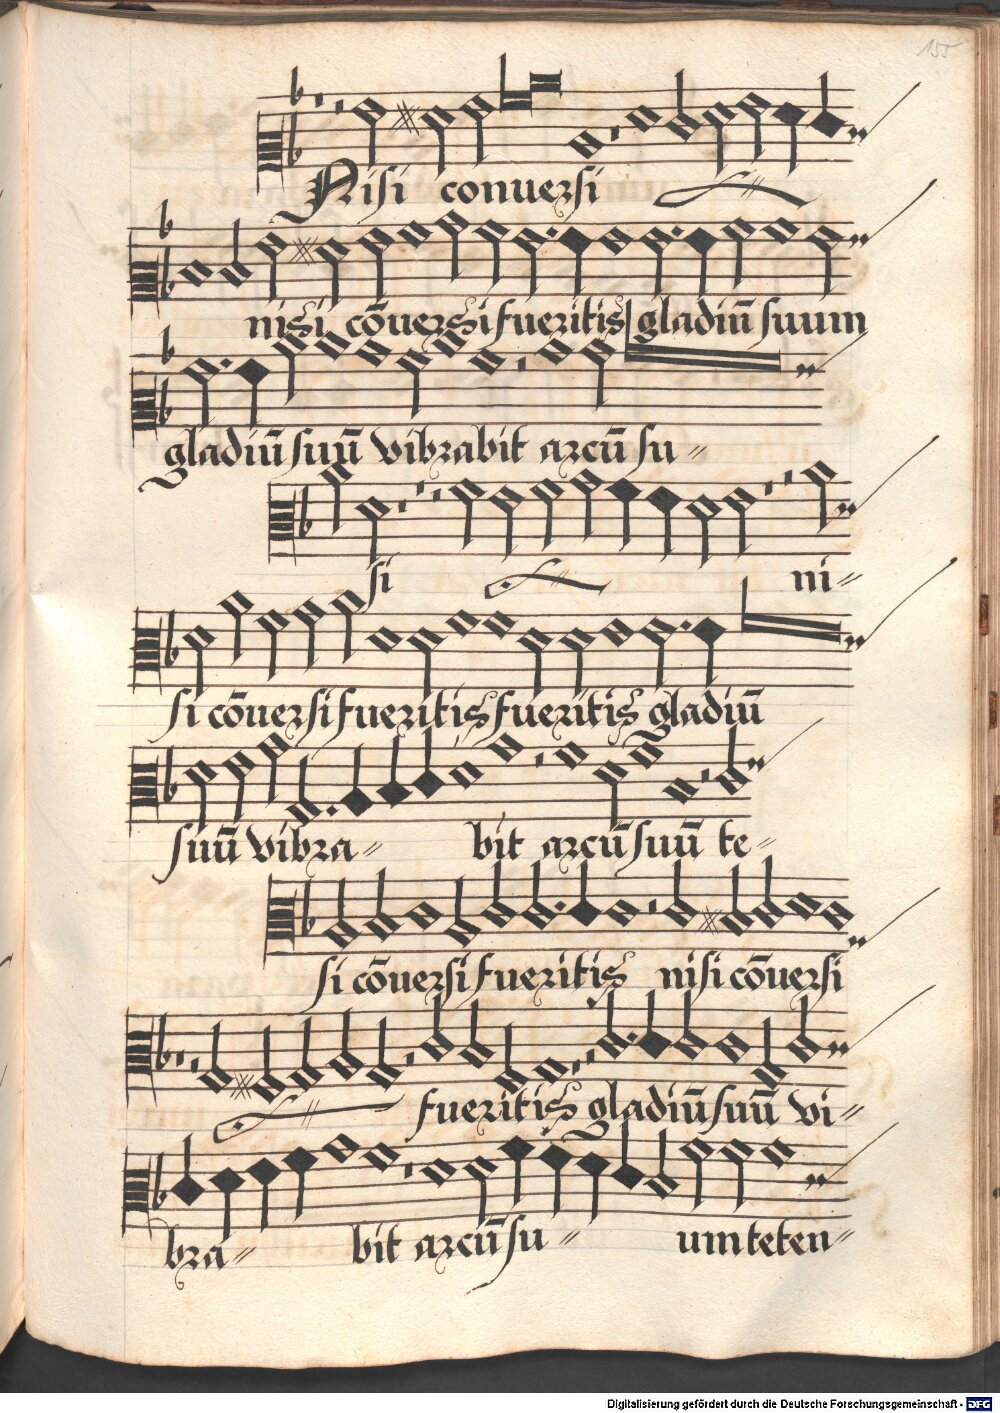 155
Nisi conuersi
nisi cōuersi fueritis gladiū suum
gladiū suū vibrabit arcū su〃
si ni〃
si cōuersi fueritis fueritis gladiū
suū vibra〃 bit arcū suū te〃
si cōuersi fueritis nisi cōuersi
fueritis gladiū suū vi〃
bra〃 bit arcū su〃 um teten〃
Digitalisierung gefördert durch die Deutsche Forschungsgemeinschaft - DFG